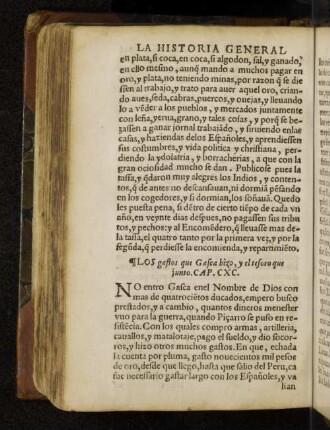 LA HISTORIA GENERAL
en plata, si coca, en coca, si algodon, sal, y ganado,
en ello mesmo, aunq̃ mando a muchos pagar en
oro, y plata, no teniendo minas, por razon q̃ se die
ssen al trabajo, y trato para auer aquel oro, crian-
do aues, seda, cabras, puercos, y ouejas, y lleuando
lo a vẽder a los pueblos, y mercados juntamente
con leña, yerua, grano, y tales cosas, y porq̃ se be-
gassen a ganar jornal trabajãdo, y siruiendo en las
casas, y haziendas delos Españoles, y aprendiessen
sus costumbres, y vida politica y christiana, per-
diendo la ydolatria, y borracherias, a que con la
gran ociosidad mucho se dan. Publicose pues la
tassa, y q̃daron muy alegres los Indios, y conten-
tos, q̃ de antes no descansauan, ni dormiã pẽsando
en los cogedores, y si dormian, los soñauã. Quedo
les puesta pena, si dẽtro de cierto tiẽpo de cada vn
año, en veynte dias despues, no pagassen sus tribu
tos, y pechos: y al Encomẽdero, q̃ lleuasse mas de-
la tassa, el quatro tanto por la primera vez, y por la
segũda, q̃ perdiesse la encomienda, y repartimiẽto.
¶ LOS gastos que Gasca hizo, y el tesoro que
junto. CAP. CXC.
NO entro Gasca enel Nombre de Dios con
mas de quatrociẽtos ducados, empero busco
prestados, y a cambio, quantos dineros menester
vuo para la guerra, quando Piçarro se puso en re-
sistẽcia. Con los quales compro armas, artilleria,
cauallos, y matalotaje, pago el sueldo, y dio socor-
ros, y hizo otros muchos gastos. En que, echada
la cuenta por pluma, gasto nouecientos mil pesos
de oro, desde que llego, hasta que salio del Peru, ca
fue necessario gastar largo con los Españoles, y va
lian